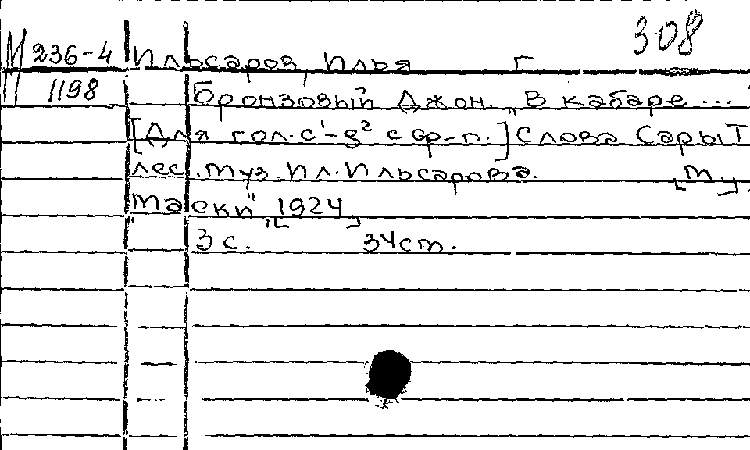 308
М 236-4 Ильсаров, Илья Г
1198 Бронзовый Джон. „В кабаре ...
[Для гол. c¹-g² с ф-п.] Слова Сары Т
лес. муз. Ил. Ильсарова.
маски", [1924]
3 с. 34 cm.